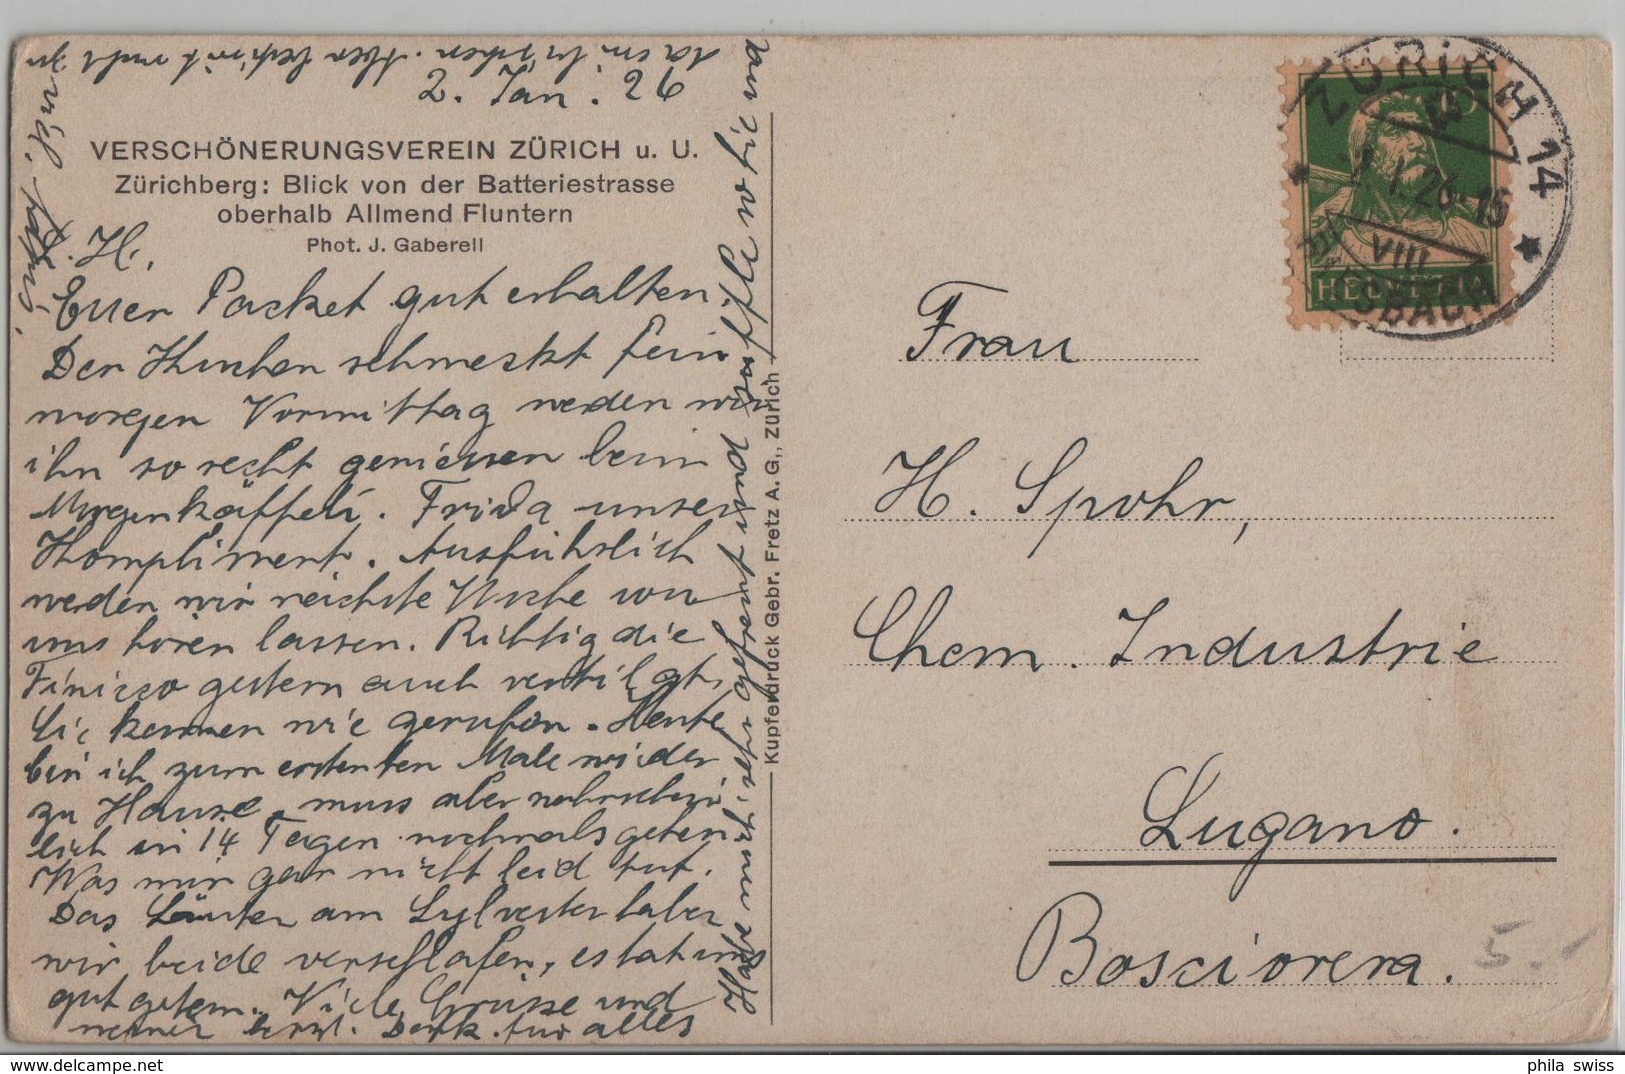 2. Jan. 26
VERSCHÖNERUNGSVEREIN ZÜRICH u. U.
Zürichberg: Blick von der Batteriestrasse
oberhalb Allmend Fluntern
Phot. J. Gaberell
Euer Packet gut erhalten.
Der Kuchen schmeckt fein
morgen Vormittag werden wir
ihn so recht geniessen beim
Morgenkäffeli. Frida unser
Kompliment. Ausführlich
werden wir nächste Woche von
uns hören lassen. Richtig die
gestern auch
Sie kommen wie gerufen. Heute
bin ich zum ersten Male wieder
zu Hause, muss aber wahrschein
lich in 14 Tagen nochmals gehen
Was mir gar nicht leid tut.
Das Läuten am Sylvester haben
wir beide verschlafen, es hat uns
gut getan. Viele Grüsse und
Dank für alles
Kupferdruck Gebr. Fretz A. G., Zürich
ZÜRICH 14
VIII
HELVETIA
Frau
H. Spohr,
Chem. Industrie
Lugano.
Bosciorera.
5.-
phila swiss